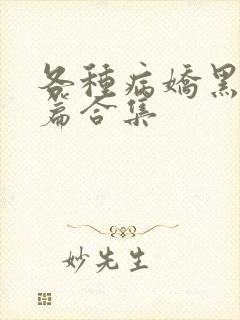 各種病嬌黑
篇合集
妙先生